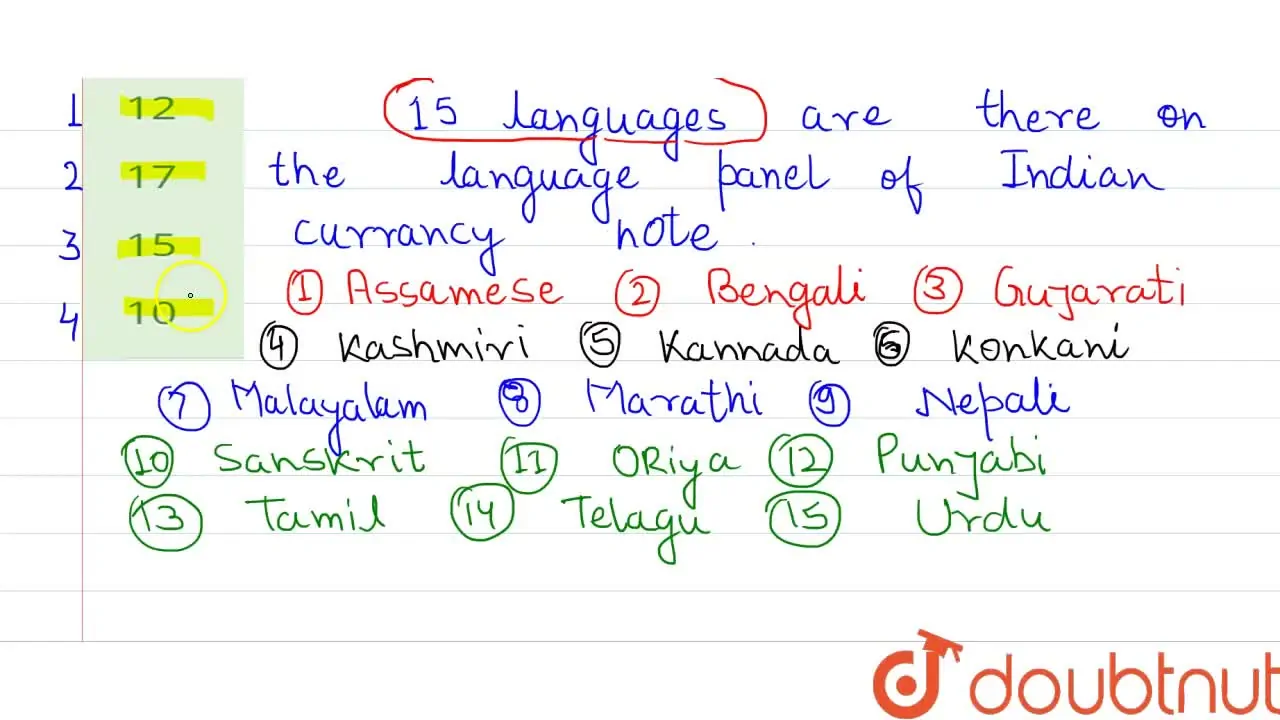 1 12 15 languages are there on
2 17 the language panel of Indian
3 15 currancy note.
① Assamese ② Bengali ③ Gujarati
4 10 ④ Kashmiri ⑤ Kannada ⑥ Konkani
⑦ Malayalam ⑧ Marathi ⑨ Nepali
⑩ Sanskrit ⑪ ORiya ⑫ Punjabi
⑬ Tamil ⑭ Telagu ⑮ Urdu
doubtnut